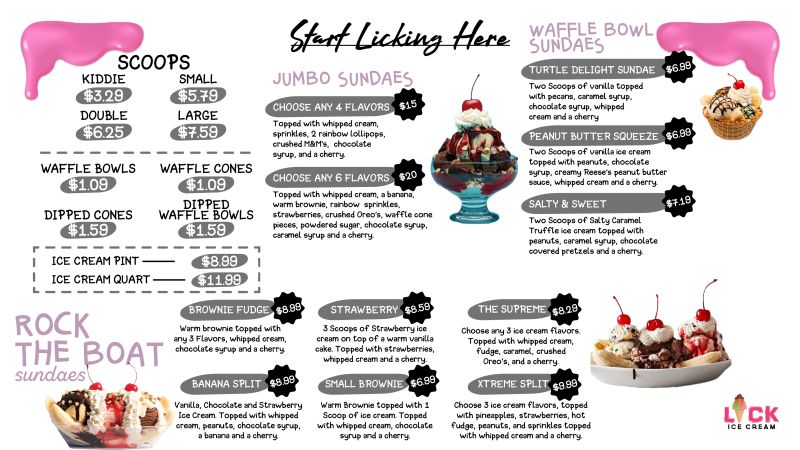 Start Licking Here
SCOOPS
KIDDIE
$3.29
SMALL
$5.79
DOUBLE
$6.25
LARGE
$7.59
WAFFLE BOWLS
$1.09
WAFFLE CONES
$1.09
DIPPED CONES
$1.59
DIPPED
WAFFLE BOWLS
$1.59
ICE CREAM PINT $8.99
ICE CREAM QUART $11.99
JUMBO SUNDAES
CHOOSE ANY 4 FLAVORS $15
Topped with whipped cream,
sprinkles, 2 rainbow lollipops,
crushed M&M's, chocolate
syrup, and a cherry.
CHOOSE ANY 6 FLAVORS $20
Topped with whipped cream, a banana,
warm brownie, rainbow sprinkles,
strawberries, crushed Oreo's, waffle cone
pieces, powdered sugar, chocolate syrup,
caramel syrup and a cherry.
WAFFLE BOWL
SUNDAES
TURTLE DELIGHT SUNDAE $6.99
Two Scoops of vanilla topped
with pecans, caramel syrup,
chocolate syrup, whipped
cream and a cherry
PEANUT BUTTER SQUEEZE $6.99
Two Scoops of vanilla ice cream
topped with peanuts, chocolate
syrup, creamy Reese's peanut butter
sauce, whipped cream and a cherry.
SALTY & SWEET $7.19
Two Scoops of Salty Caramel
Truffle ice cream topped with
peanuts, caramel syrup, chocolate
covered pretzels and a cherry.
ROCK
THE BOAT
sundaes
BROWNIE FUDGE $8.99
Warm brownie topped with
any 3 Flavors, whipped cream,
chocolate syrup and a cherry.
STRAWBERRY $8.59
3 Scoops of Strawberry ice
cream on top of a warm vanilla
cake. Topped with strawberries,
whipped cream and a cherry.
THE SUPREME $8.29
Choose any 3 ice cream flavors.
Topped with whipped cream,
fudge, caramel, crushed
Oreo's, and a cherry.
BANANA SPLIT $8.99
Vanilla, Chocolate and Strawberry
Ice Cream. Topped with whipped
cream, peanuts, chocolate syrup,
a banana and a cherry.
SMALL BROWNIE $6.99
Warm Brownie topped with 1
Scoop of ice cream. Topped
with whipped cream, chocolate
syrup and a cherry.
XTREME SPLIT $9.99
Choose 3 ice cream flavors, topped
with pineapples, strawberries, hot
fudge, peanuts, and sprinkles topped
with whipped cream and a cherry.
LICK
ICE CREAM